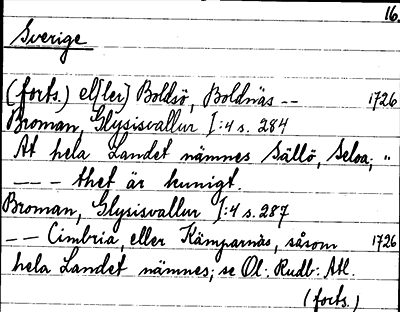 16.
Sverige
(forts.) el[ler] Boldsö, Boldnäs -- 1726
Broman, Glysisvallur I:4 s. 284
At hela Landet nämnes Sällö, Seloa, "
--- thet är kunigt.
Broman, Glysisvallur I:4 s. 287
-- Cimbria, eller Kämparnäs, såsom 1726
hela Landet nämnes; se Ol: Rudb: Atl.
(forts.)